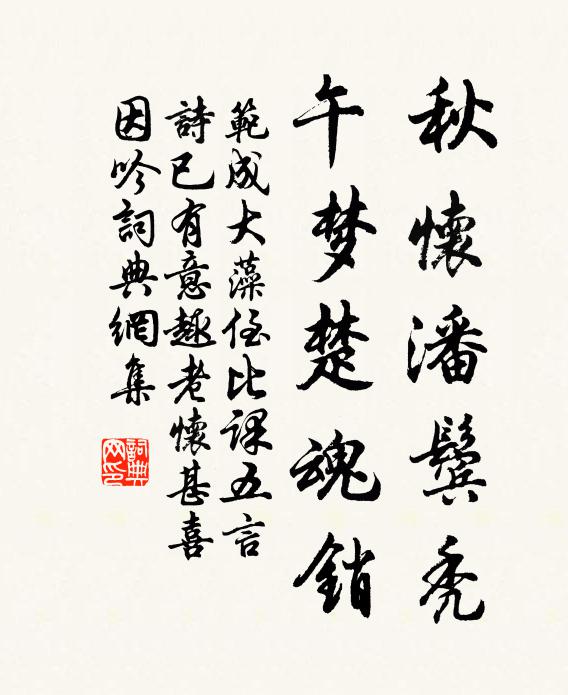 秋懷潘鬢禿
午梦楚魂銷
範成大藻侄比課五言
詩已有意趣老懷甚喜
因吟詞典網集
詞典
网印